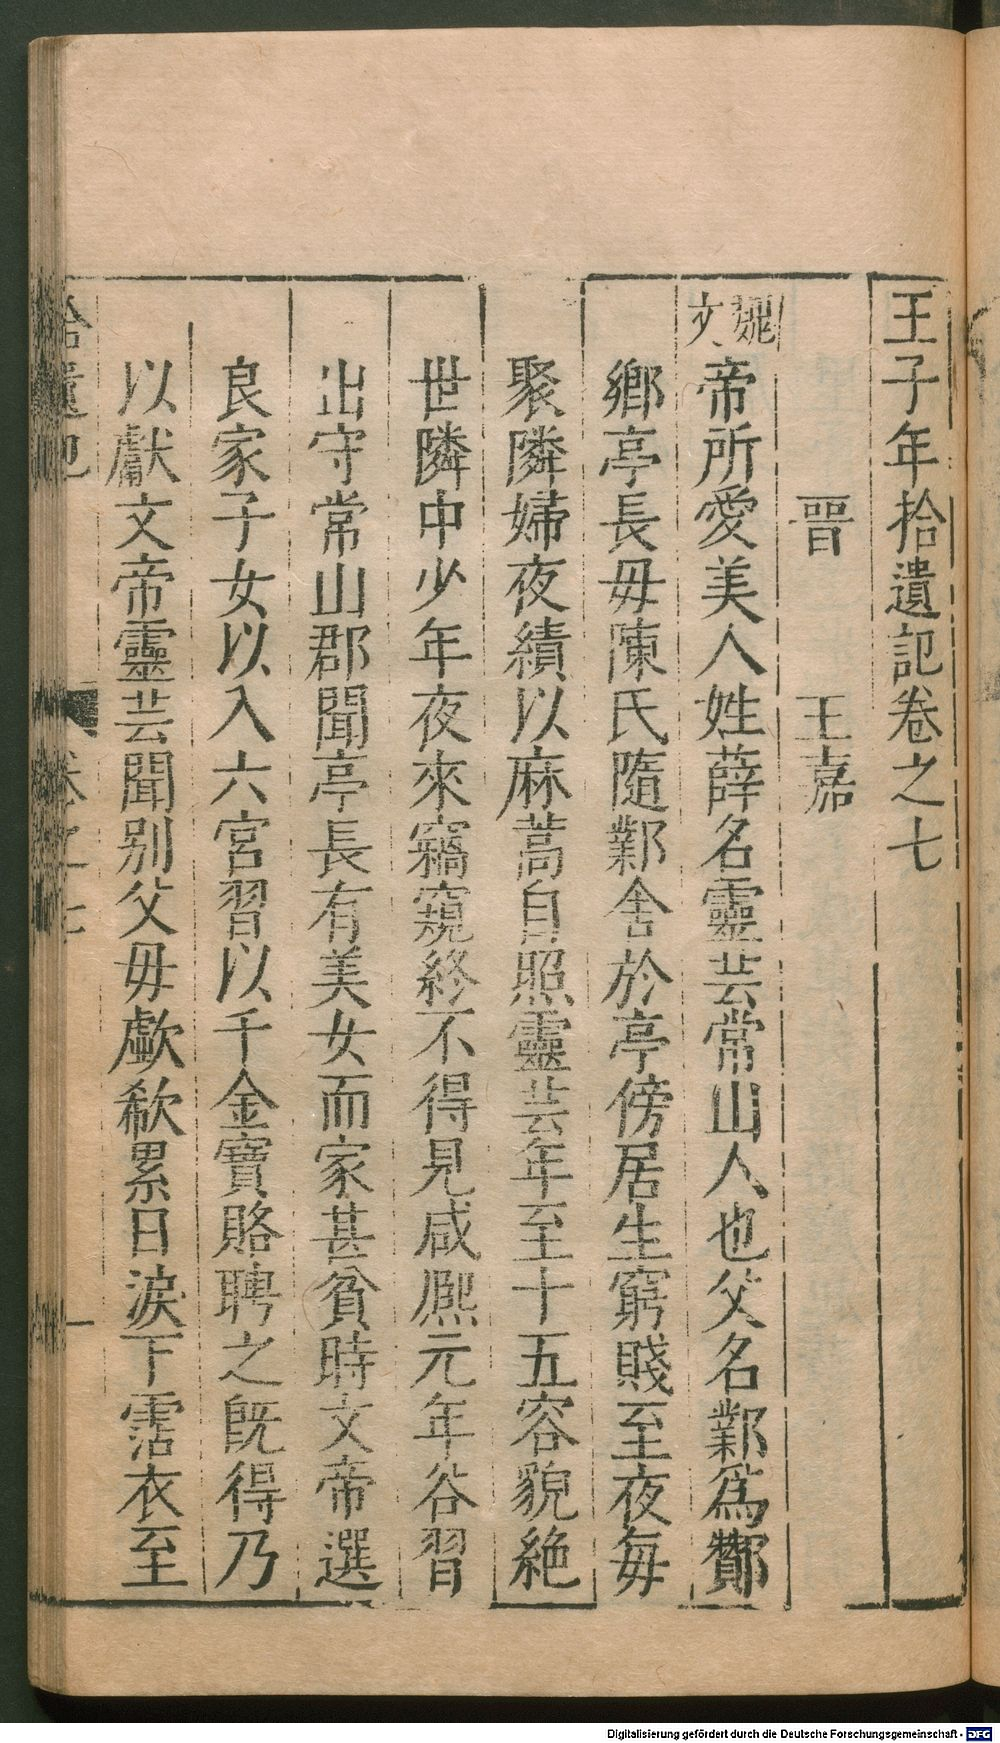 王子年拾遺記卷之七
晉 王嘉
魏文帝所愛美人姓薛名靈芸常山人也父名鄴爲酇
鄉亭長毋陳氏隨鄴舍於亭傍居生窮賤至夜每
聚隣婦夜績以麻蒿自照靈芸年至十五容貌絶
世隣中少年夜來竊窺終不得見咸熈元年谷習
出守常山郡聞亭長有美女而家甚貧時文帝選
良家子女以入六宮習以千金寶賂聘之旣得乃
以獻文帝靈芸聞别父毋歔欷累日淚下霑衣至
拾遺記 卷之七 一
Digitalisierung gefördert durch die Deutsche Forschungsgemeinschaft - DFG